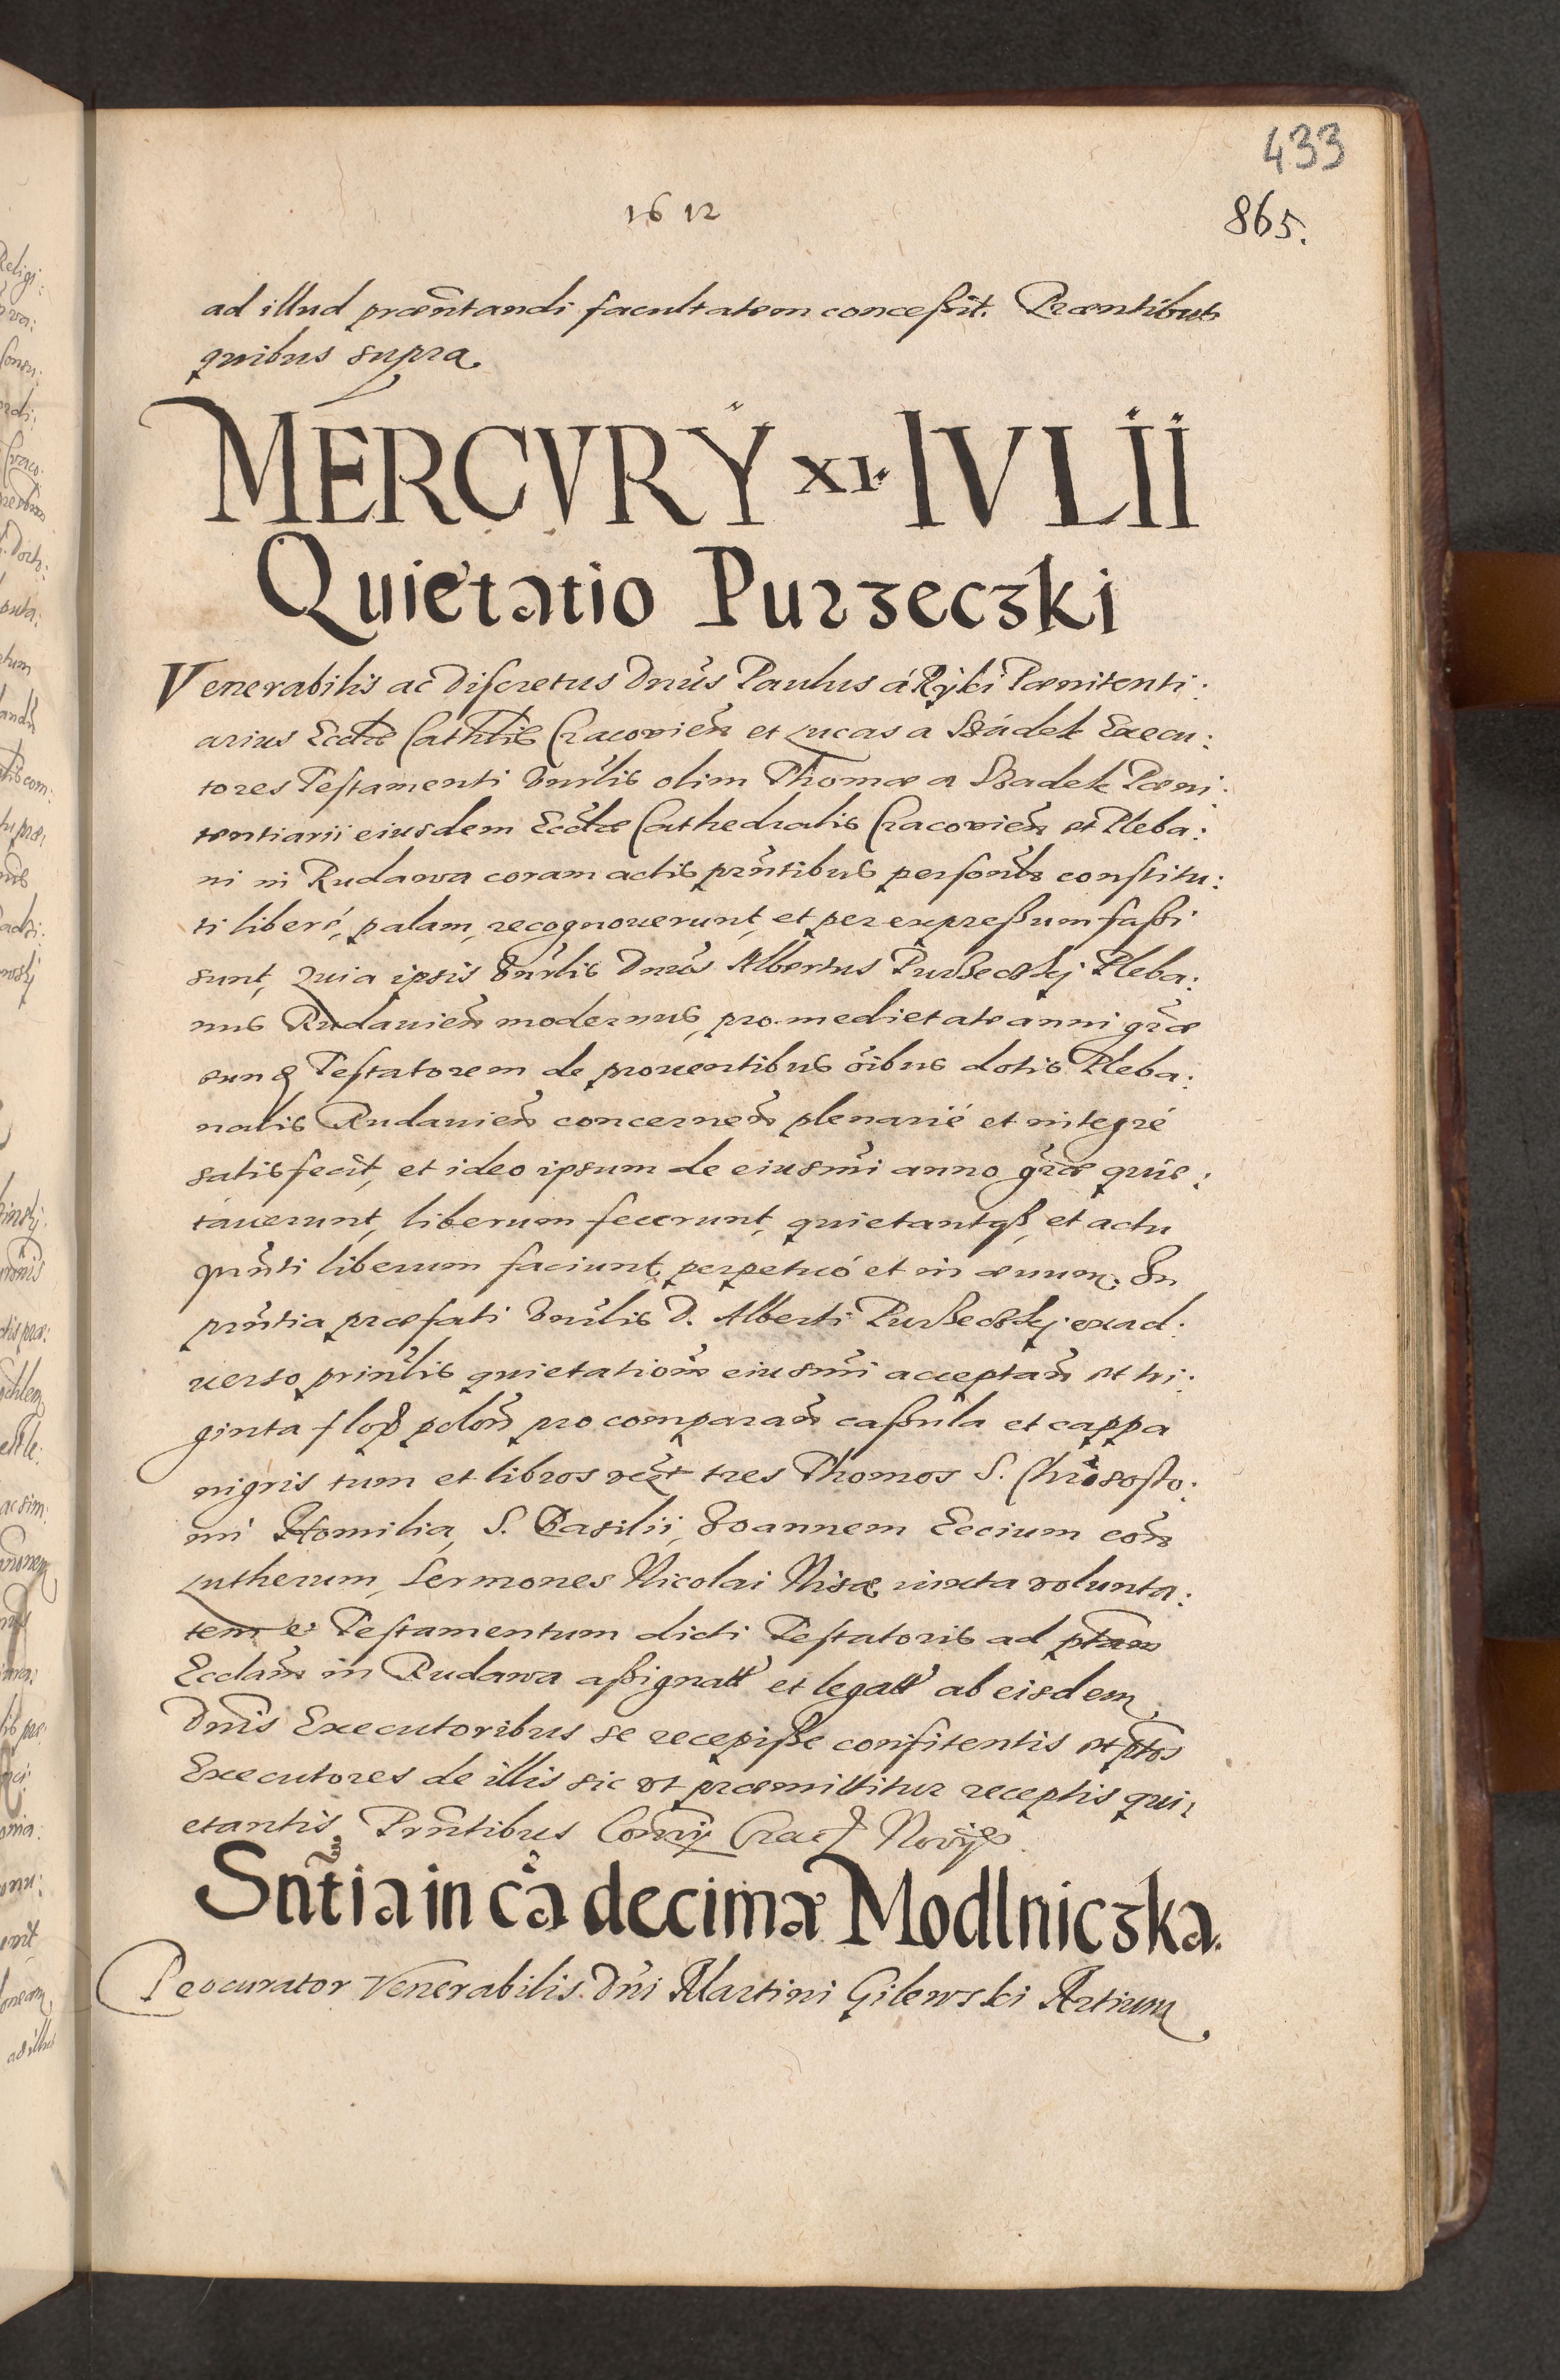 433
1612
865.
ad illud præñtandi facultatem conceßit. Præntibus
quibus supra.
MERCVRY XI. IVLII
Quietatio Purzeczki
Venerabilis ac Discretus Dnũs Paulus á Ryki Pœnitenti:
arius Eccłæ Cathłis Cracovień et Lucas a Szádek Execu:
tores Testamenti Vnrlis olim Thomæ a Szadek Pœni:
tentiarii eiusdem Eccłæ Cathedralis Cracovień et Pleba:
ni in Rudawa coram actis prñtibus personłr constitu:
ti liberé, palam, recognouerunt, et per expreßum faßi
sunt, Quia ipsis Vnrlis Dnũs Albertus Purzeczkj Pleba:
nus Rudauień modernus, pro medietate anni grãæ
eunq Testatorem de prouentibus oĩbus dotis Pleba:
nalis Rudauień concerneñ plenarié et integré
satisfecit, et ideo ipsum de eiusmĩ anno grãæ quie:
táuerunt, liberum fecerunt, quietantqß, et actu
prñti liberum faciunt perpetuó et in æuum. In
prñtia præfati Vnrlis D. Alberti Purzeczkj ex ad:
uerso prinłis quietationẽ eiusmĩ acceptañ et tri:
ginta floß poloñ pro comparañ caßula et cappa
nigris tum et libros tres Thomos S. Chrisosto:
mi Homilia, S. Basilii, Ioannem Eccium coñ
Lutherum, Sermones Nicolai Nisæ iuxta volunta:
tem et Testamentum dicti Testatoris ad ptam
Ecclãm in Rudawa aßignatt et legatt ab eisdem
Dnĩs Executoribus se recepiße confitentis et ptos
Executores de illis sic vt præmittitur receptis qui:
etantis Prñtibus Crac Nory
Sñtia in cã decimæ Modlniczka.
Procurator Venerabilis Dñi Martini Gilewski Artium